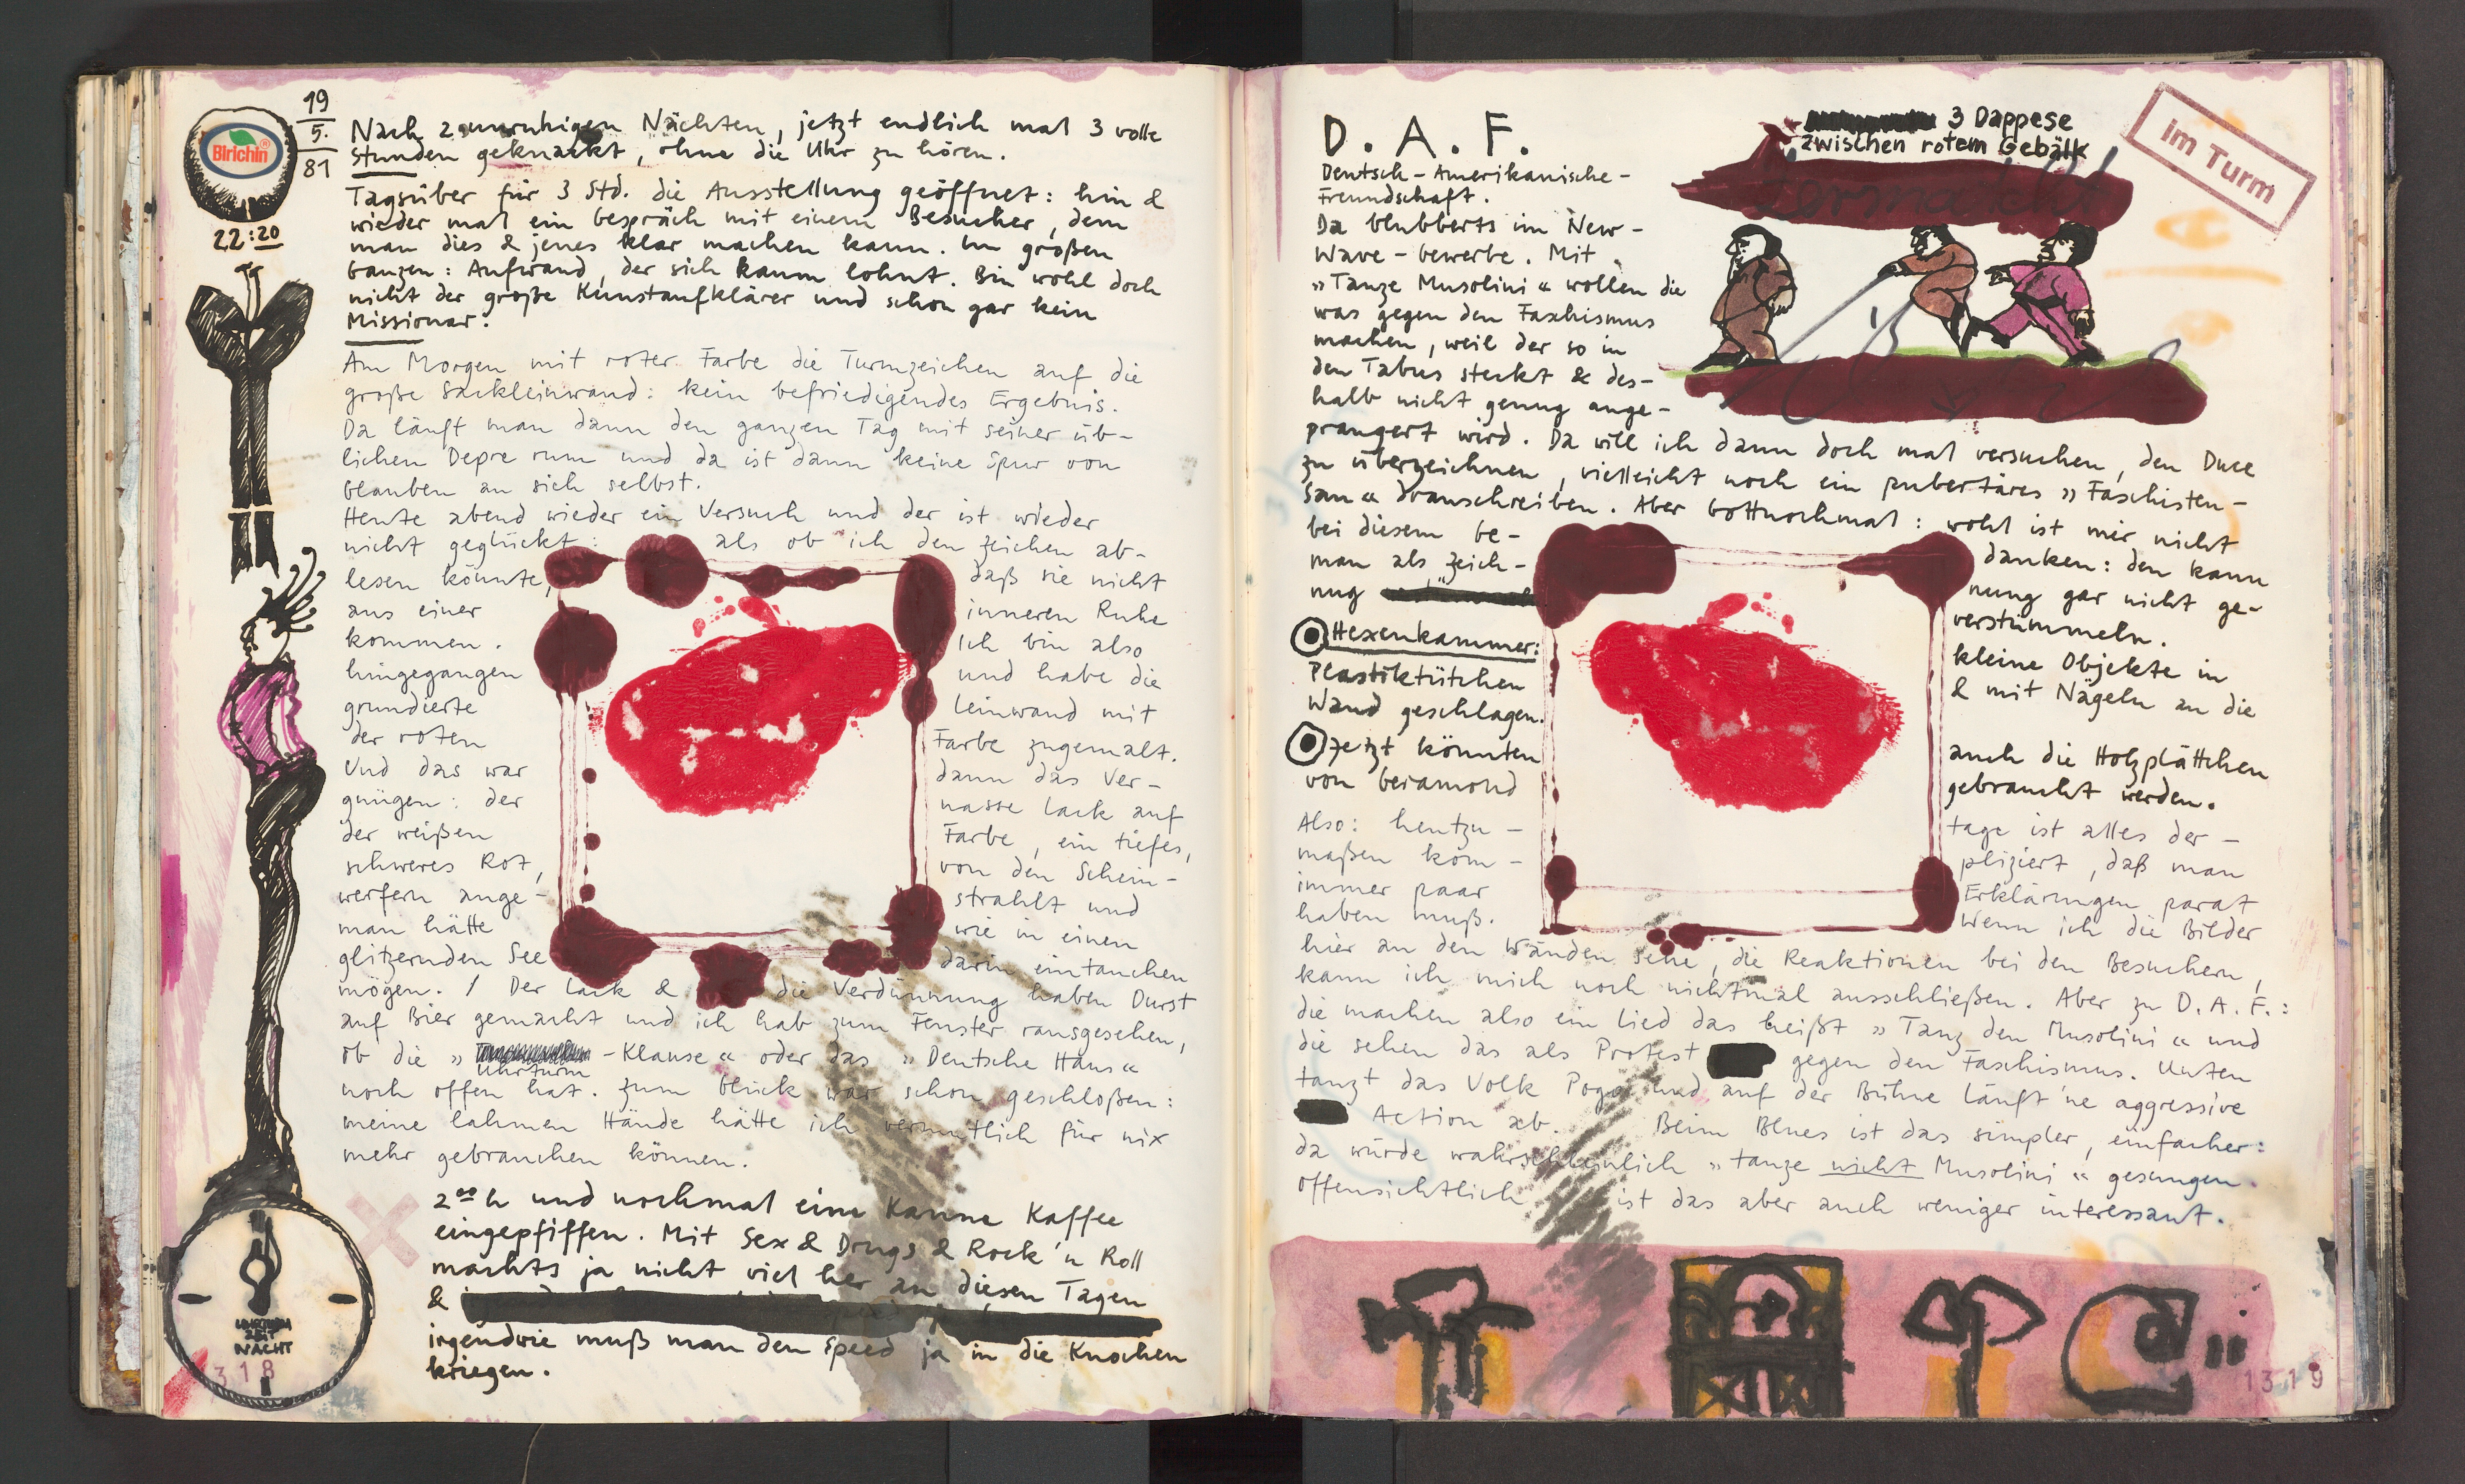 Birichin®
22:20
19
5.
81
Nach 2 unruhigen Nächten, jetzt endlich mal 3 volle
Stunden geknackt, ohne die Uhr zu hören.
Tagsüber für 3 Std. die Ausstellung geöffnet: hin &
wieder mal ein Gespräch mit einem Besucher, dem
man dies & jenes klar machen kann. Im großen
Ganzen: Aufwand, der sich kaum lohnt. Bin wohl doch
nicht der große Kunstaufklärer und schon gar kein
Missionar.
Am Morgen mit roter Farbe die Turmzeichen auf die
große Sackleinwand: kein befriedigendes Ergebnis.
Da läuft man dann den ganzen Tag mit seiner üb-
lichen Depre rum und da ist dann keine Spur von
Glauben an sich selbst.
Heute abend wieder ein Versuch und der ist wieder
nicht geglückt: als ob ich den Zeichen ab-
lesen könnte, daß sie nicht
aus einer inneren Ruhe
kommen. Ich bin also
hingegangen und habe die
grundierte Leinwand mit
der roten Farbe zugemalt.
Und das war dann das Ver-
gnügen: der nasse Lack auf
der weißen Farbe, ein tiefes,
schweres Rot, von den Schein-
werfern ange- strahlt und
man hätte wie in einen
glitzernden See darin eintauchen
mögen. / Der Lack & die Verdünnung haben Durst
auf Bier gemacht und ich hab zum Fenster rausgesehen,
ob die » -Klause « oder das » Deutsche Haus «
Uhrturm
noch offen hat. Zum Glück war schon geschloßen:
meine lahmen Hände hätte ich vermutlich für nix
mehr gebrauchen können.
2⁰⁰ h und nochmal eine Kanne Kaffee
eingepfiffen. Mit Sex & Drugs & Rock'n Roll
machts ja nicht viel her an diesen Tagen
&
irgendwie muß man den Speed ja in die Knochen
kriegen.
NACHT
318
D. A. F.
Deutsch-Amerikanische-
Freundschaft.
Da blubberts im New-
Wave-Gewerbe. Mit
»Tanze Musolini« wollen die
was gegen den Faschismus
machen, weil der so in
den Tabus steckt & des-
halb nicht genug ange-
prangert wird. Da will ich dann doch mal versuchen, den Duce
zu überzeichnen, vielleicht noch ein pubertäres » Faschisten-
Sau « draufschreiben. Aber Gottnochmal: wohl ist mir nicht
bei diesem Ge- danken: den kann
man als Zeich- nung gar nicht ge-
nug verstümmeln.
Hexenkammer: kleine Objekte in
Plastiktütchen & mit Nägeln an die
Wand geschlagen.
Jetzt könnten auch die Holzplättchen
von Geiamond gebraucht werden.
Also: heutzu- tage ist alles der-
maßen kom- pliziert, daß man
immer paar Erklärungen parat
haben muß. Wenn ich die Bilder
hier an den Wänden sehe, die Reaktionen bei den Besuchern,
kann ich mich noch nichtmal ausschließen. Aber zu D. A. F.:
die machen also ein Lied das heißt » Tanz den Musolini « und
die sehen das als Protest gegen den Faschismus. Unten
tanzt das Volk Pogo und auf der Bühne läuft 'ne aggressive
Action ab. Beim Blues ist das simpler, einfacher:
da würde wahrscheinlich » tanze nicht Musolini « gesungen.
Offensichtlich ist das aber auch weniger interessant.
3 Dappese
zwischen rotem Gebälk
im Turm
1319